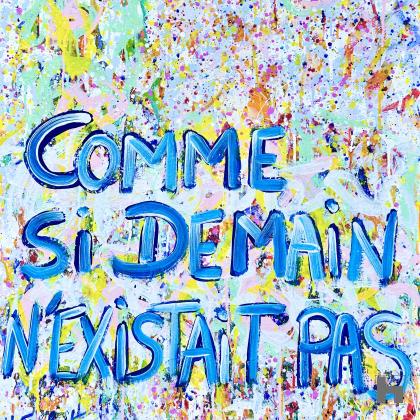 COMME
Si DEMAiN
N'EXiSTAiT PAS